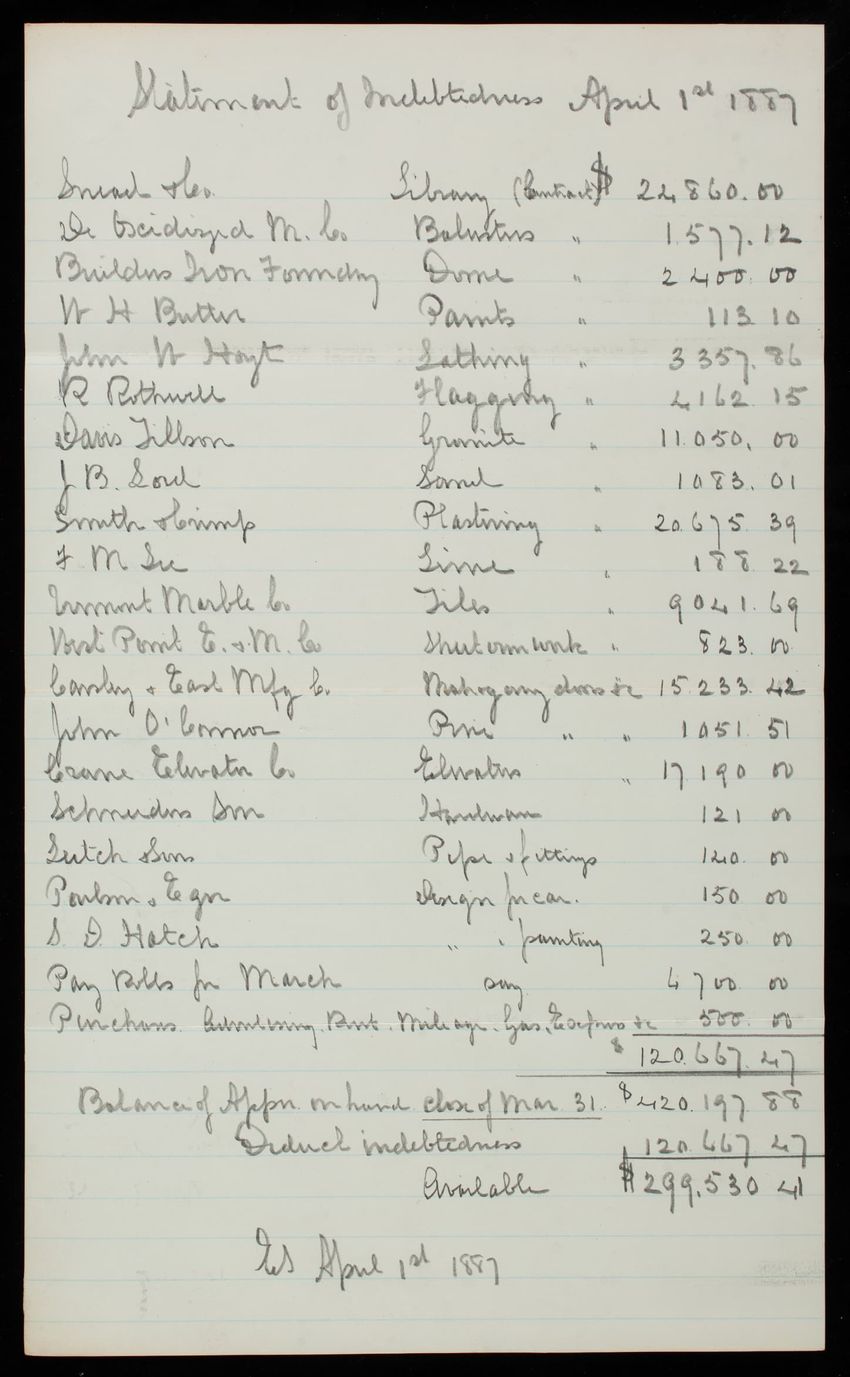 Statement of Indebtedness April 1st 1887
Snead & Co. Library (Contract) $ 24860.00
De Oxidized M. Co Balusters " 1.577.12
Builders Iron Foundry Dome " 2400.00
W H Butler Paints " 113 10
John W Hoyt Lathing " 3357.86
R Rothwell Flagging " 4162 15
Davis Tillson Granite " 11.050.00
J B. Lord Sand " 1083.01
Smith & Crimp Plastering " 20.675 39
F M Lee Lime " 188 22
Vermont Marble Co Tiles " 9041.69
West Point E. & M. Co Sheet ironwork " 823.00
Carsley & East Mfg Co. Mahogany doors &c 15.233.42
John O'Connor Pine " " 1051 51
Crane Elevator Co Elevators " 17190 00
Schneiders Son Hardware 121 00
Leitch & Sons Pipe & fittings 140.00
Poulson & Eger Design for car. 150 00
S. D. Hatch " " painting 250.00
Pay Rolls for March say 6700.00
Purchases. Advertising. Rent. Mileage. Gas, Express &c 500.00
$ 120.667.47
Balance of Appn. on hand close of Mar 31. $420.197 88
Deduct indebtedness 120.667 47
Available $299,530 41
ES April 1st 1887